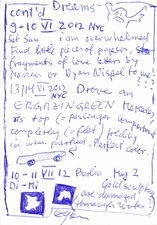 cont'd Dreams-
9-10 VI 2012 NYC
Sat Sun i am overwhelmed
Find little pieces of papers,
fragments of love letters by
or Dyan to me
13/14 VI 2012 Drove an
NYC
ERGAZINGREEN Mercedes
its top (= passenger compartment
completely (= felt) folded
in when parked. Perfect color.
10-11 VII 12 Berlin Aug 2
Di-Mi Gold sculptures
are damaged
through water